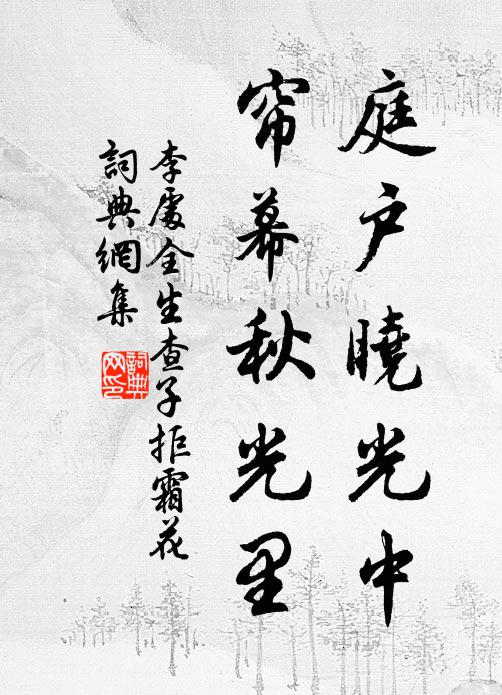 庭户曉光中
帘幕秋光里
李處全生查子拒霜花
詞典網集
詞典
网印